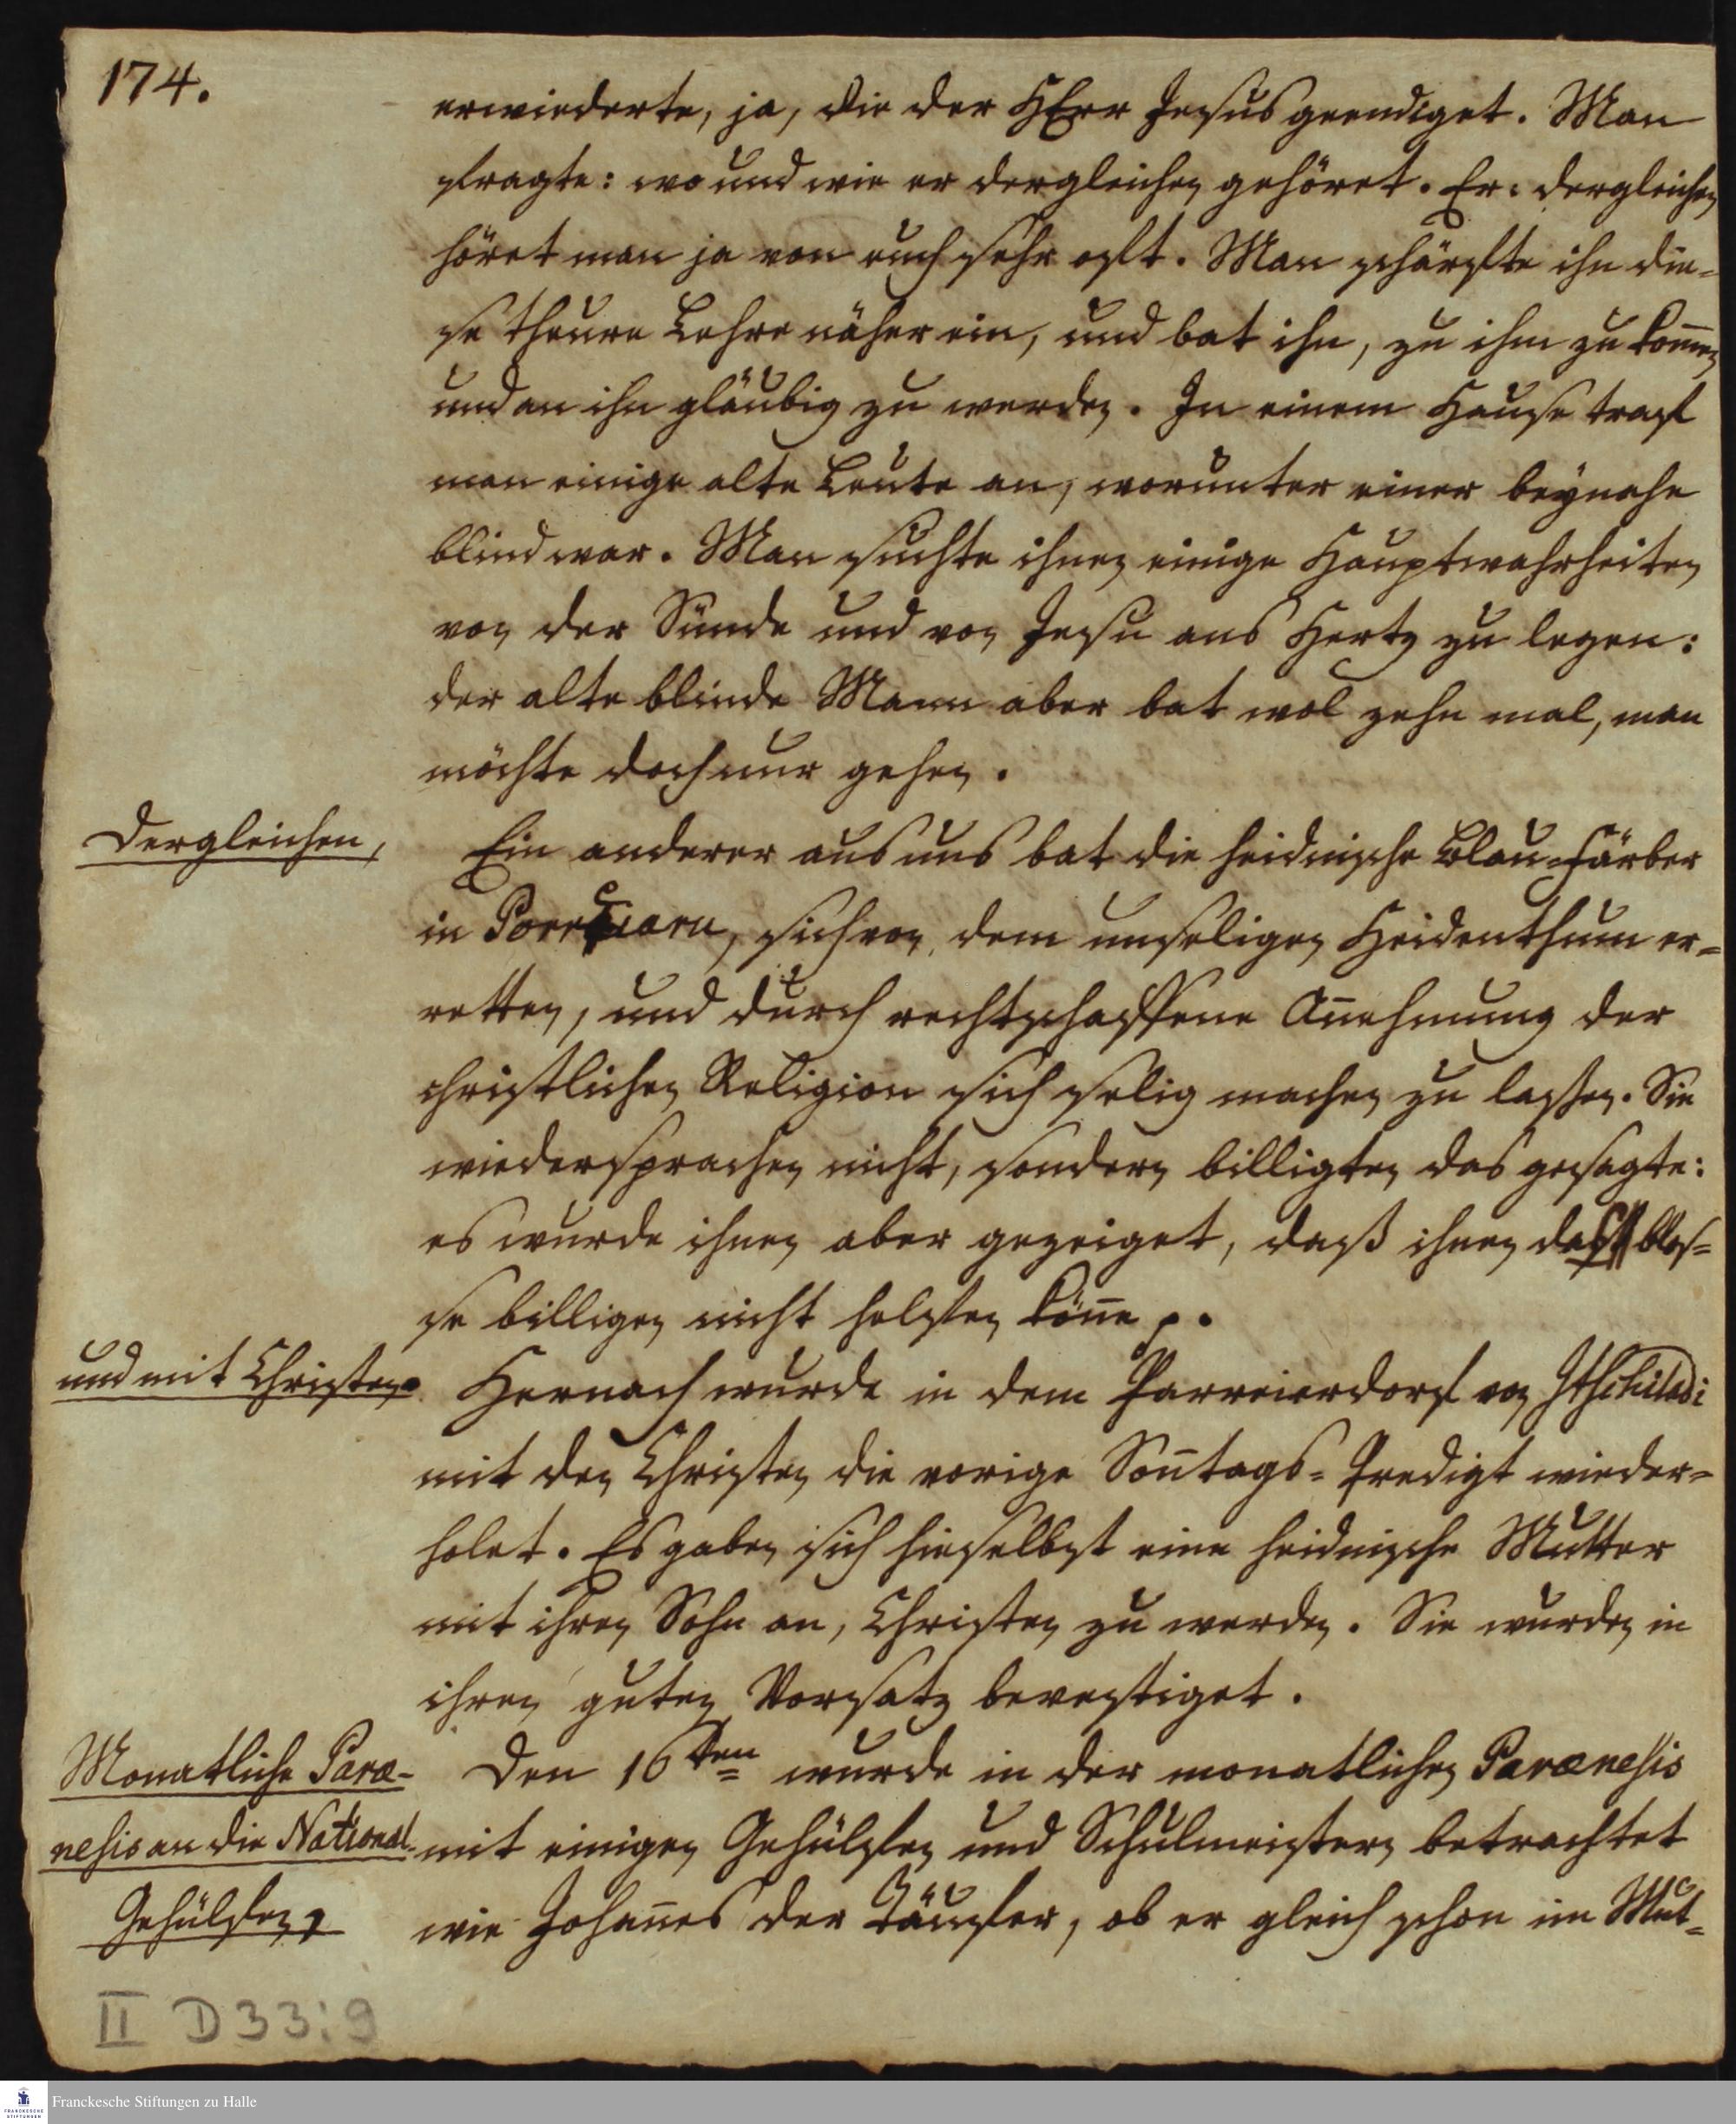 174.
erwiederte, ja, die der HErr Jesus geendiget. Man
fragte: wo und wie er dergleichen gehöret. Er: dergleichen
höret man ja von euch sehr oft. Man schärfte ihn die=
se theure Lehre näher ein, und bat ihn, zu ihm zu kom̄en
und an ihn gläubig zu werden. In einem Hause traf
man einige alte Leute an, worunter einer beynahe
blind war. Man suchte ihnen einige Hauptwahrheiten
von der Sünde und von Jesu ans Hertz zu legen:
der alte blinde Mann aber bat wol zehn mal, man
möchte doch nur gehen.
Dergleichen,
Ein anderer aus uns bat die heidnische Blau=färber
in, sich von dem unseligen Heidenthum er=
retten, und durch rechtschaffene An̄ehmung der
christlichen Religion sich selig machen zu lassen. Sie
wiedersprachen nicht, sondern billigten das gesagte:
es wurde ihnen aber gezeiget, daß ihnen das blos=
se billigen nicht helfen kön̄e p.
und mit Christen.
Hernach wurde in dem Parreierdorf von
mit den Christen die vorige Son̄tags=Predigt wieder=
holet. Es gaben sich hieselbst eine heidnische Mutter
mit ihren Sohn an, Christen zu werden. Sie wurden in
ihren guten Vorsatz bevestiget.
Monatliche Paræ-
nesis an die National-
Gehülfen,
Den 16ten wurde in der monatlichen Parænesis
mit einigen Gehülfen und Schulmeistern betrachtet
wie Johan̄es der Täufer, ob er gleich schon im Mut=
II D33:9
FRANCKESCHE STIFTUNGEN
Franckesche Stiftungen zu Halle